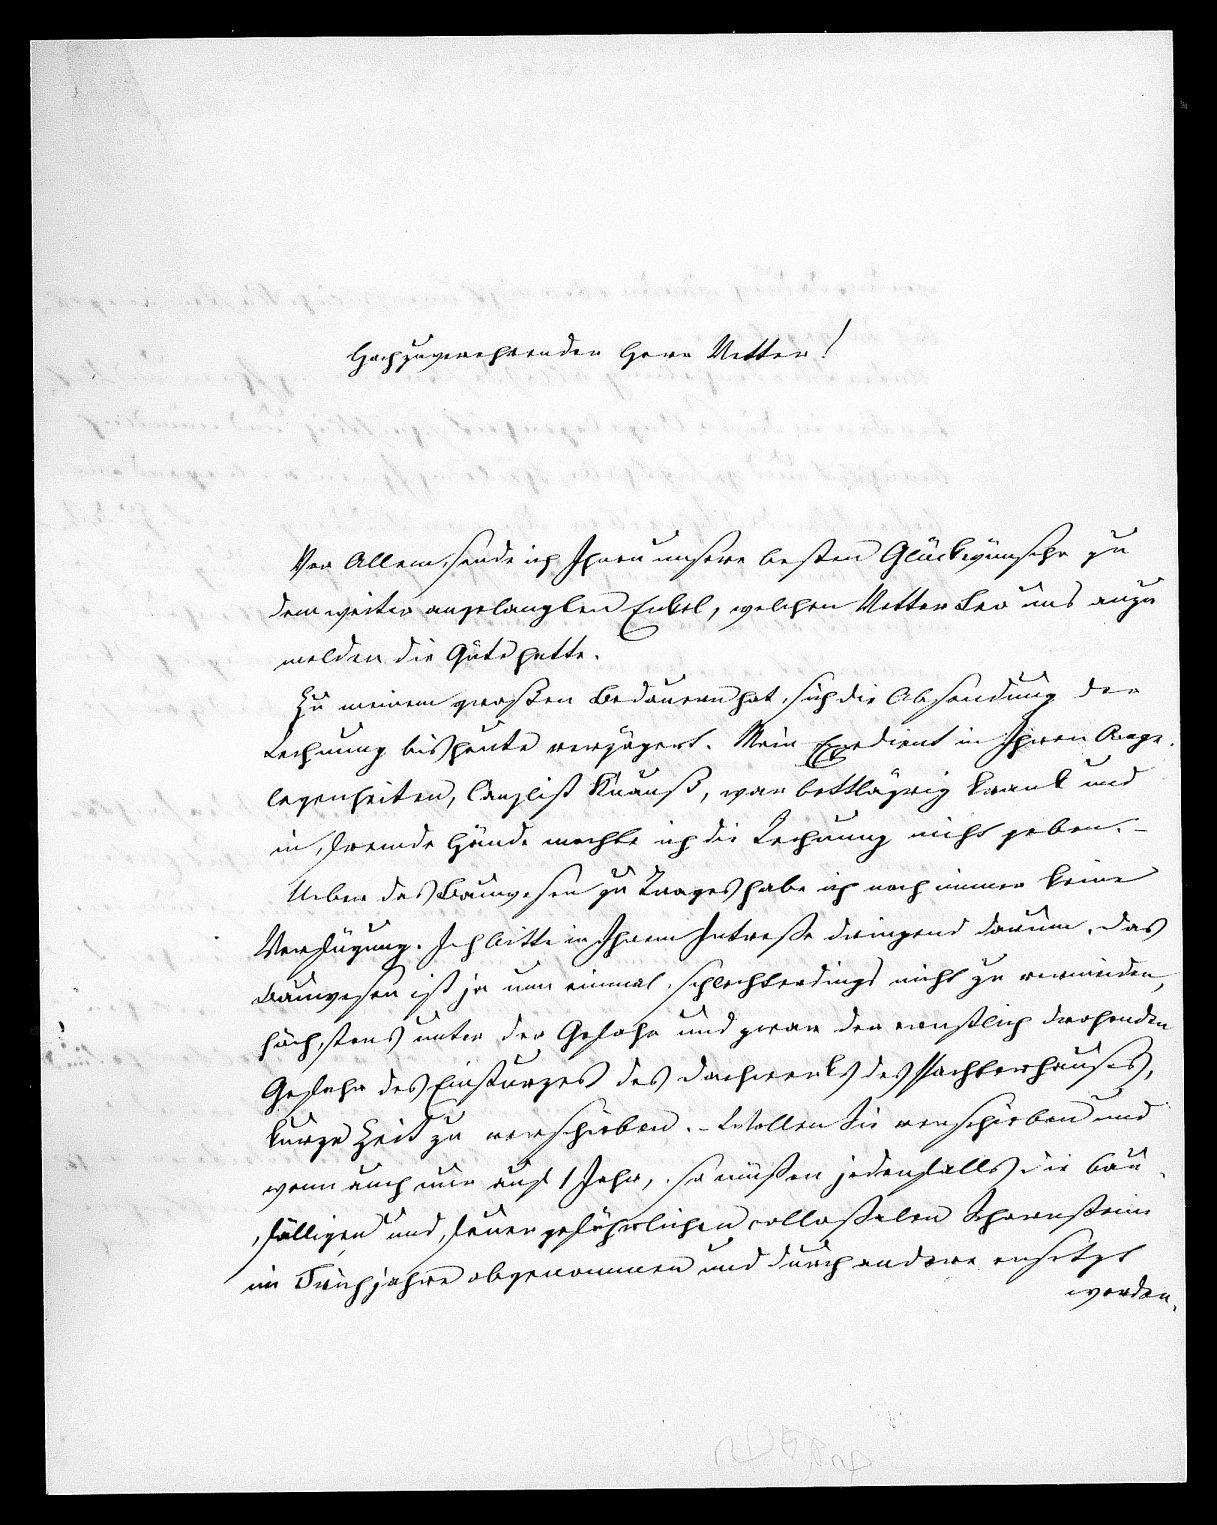 Hochzuverehrender Herr Vetter!
Vor Allem sende ich Ihnen unsere besten Glückwünsche zu
dem weiter angelangten Enkel, welchen Vetter Leo uns anzu
melden die Güte hatte.
Zu meinem großen Bedauern hat sich die Absendung der
Rechnung bis heute verzögert. Mein Expedient in Ihren Ange-
legenheiten, Canzlist Knauß, war bettlägrig krank und
in fremde Hände mochte ich die Rechnung nicht geben. –
Ueber das Bauwesen zu habe ich noch immer keine
Verfügung. Ich bitte in Ihrem Intreße dringend darum. Das
Bauwesen ist ja nun einmal schlechterdings nicht zu vermeiden,
höchstens unter der Gefahr und zwar der ernstlich drohenden
Gefahr des Einsturzes des Dachwerks des Pachterhauses,
kurze Zeit zu verschieben. – Wollen Sie verschieben und
wenn auch nur auf 1 Jahr, so müßen jedenfalls die bau-
fälligen und feuergefährlichen colloßalen Schornsteine
im Frühjahre abgenommen und durch andere ersetzt
werden.